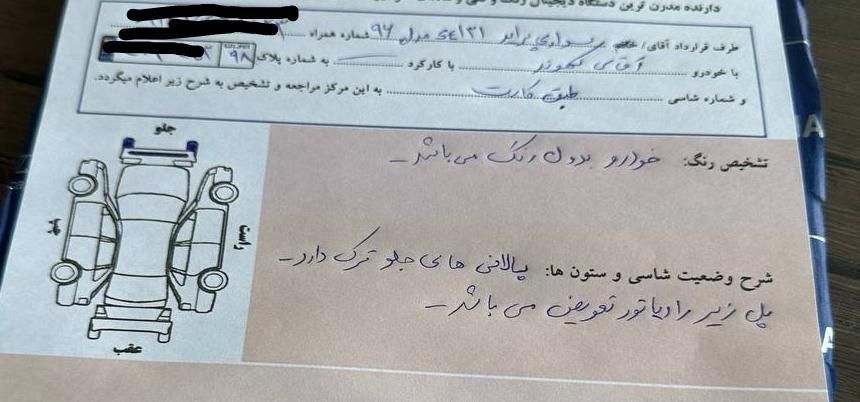 دارنده مدرن ترین دستگاه دیجیتال رنگ و فنی و
طرف قرارداد آقای/خانم سواری پراید SE 131 مدل 96 شماره همراه
با خودرو آقای نهوند با کارکرد به شماره پلاک 98
و شماره شاسی طبق کارت به این مرکز مراجعه و تشخیص به شرح زیر اعلام میگردد.
جلو
چپ
راست
عقب
تشخیص رنگ: خودرو بدون رنگ می باشد
شرح وضعیت شاسی و ستون ها: پالانی های جلو ترک دارد
پل زیر رادیاتور تعویض می باشد